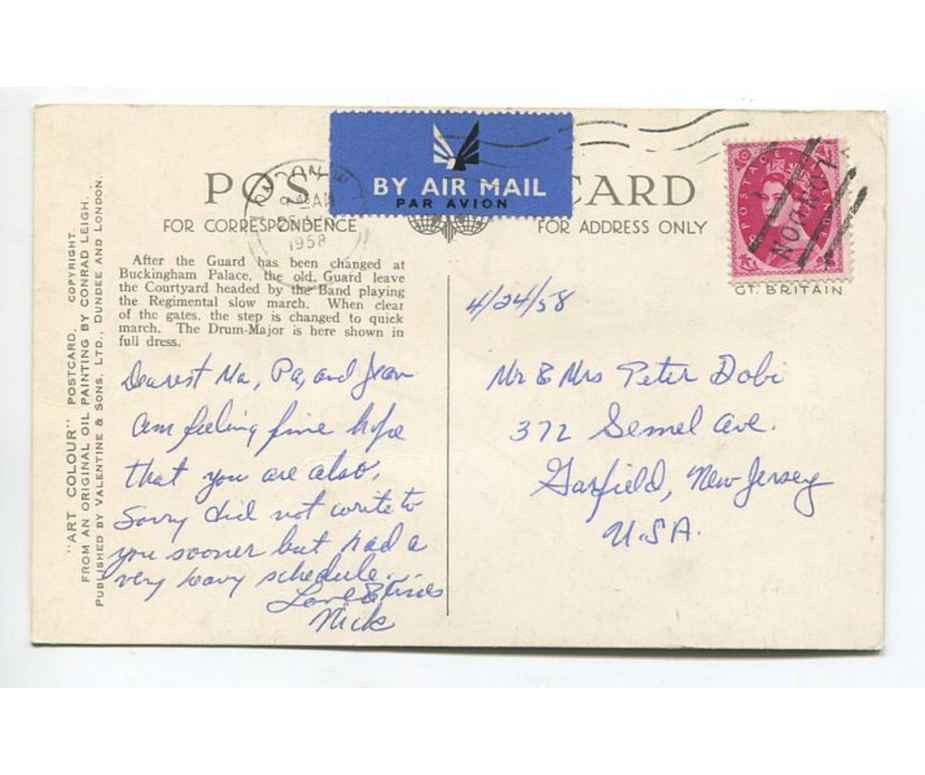 "ART COLOUR" POSTCARD. COPYRIGHT.
FROM AN ORIGINAL OIL PAINTING BY CONRAD LEIGH.
PUBLISHED BY VALENTINE & SONS, LTD., DUNDEE AND LONDON.
POST CARD
BY AIR MAIL
PAR AVION
FOR CORRESPONDENCE
FOR ADDRESS ONLY
1958
POSTAGE
LONDON
GT. BRITAIN
After the Guard has been changed at
Buckingham Palace, the old Guard leave
the Courtyard headed by the Band playing
the Regimental slow march. When clear
of the gates, the step is changed to quick
march. The Drum-Major is here shown in
full dress.
Dearest Ma, Pa, and Jean
am feeling fine hope
that you are also.
Sorry did not write to
you sooner but had a
very heavy schedule.
Love &
Nick
4/24/58
Mr & Mrs Peter Dobi
372 Semel ave.
Garfield, New Jersey
U.S.A.